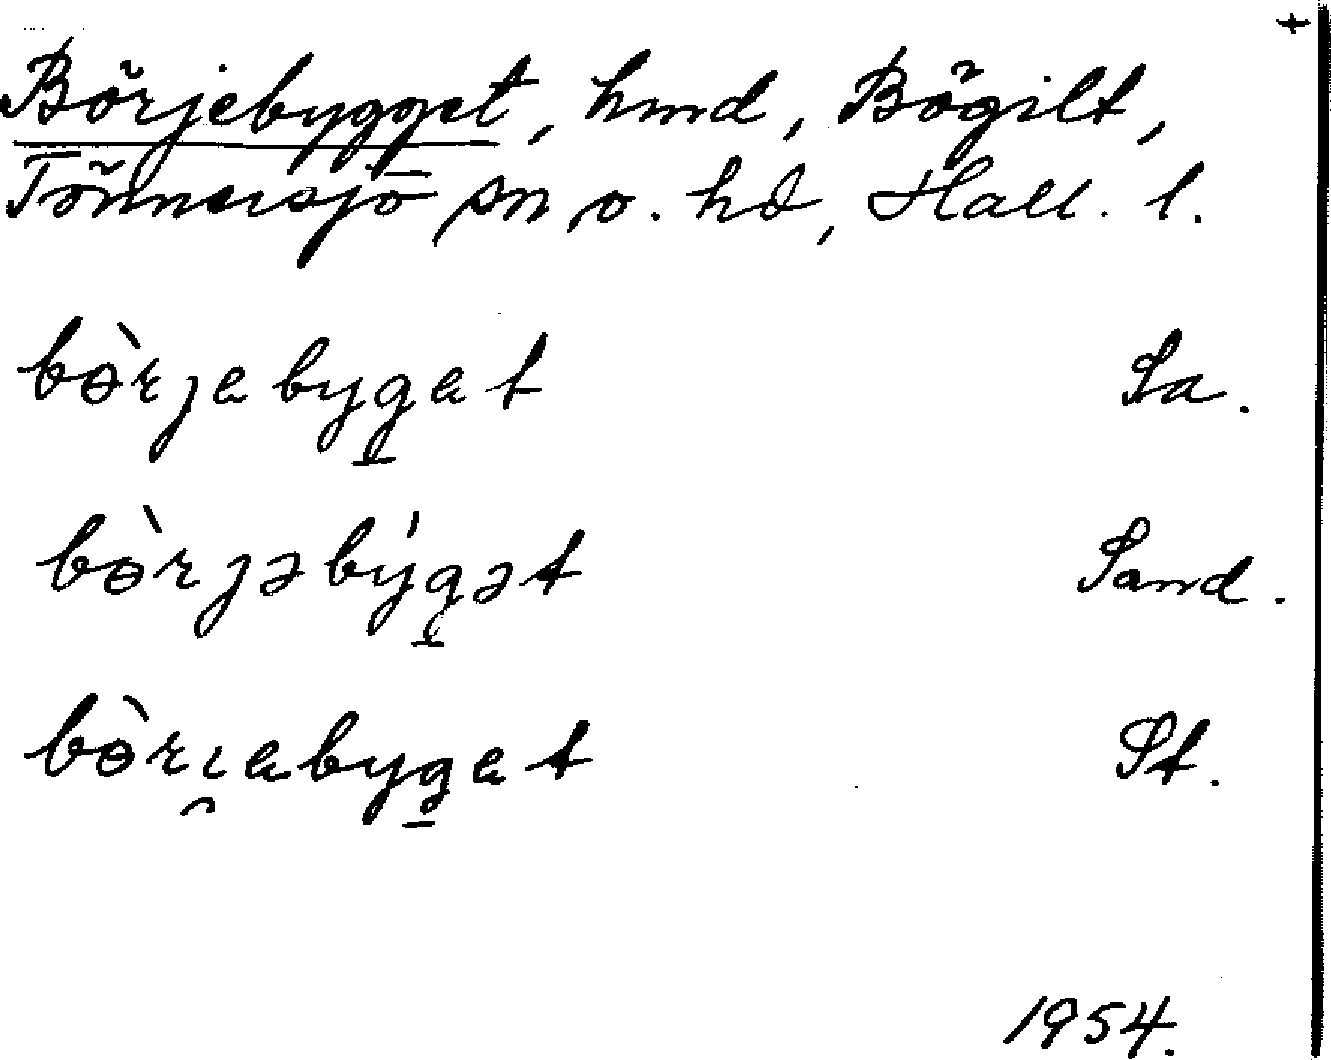 +
Börjebygget, hmd, Bögilt,
Tönnersjö sn o. hd, Hall. l.
bɵ̀rjebyg̱et Sa.
bɵ̀rjəbýg̱ət Sand.
bɵ̀rı̯ebyg̱et St.
1954.